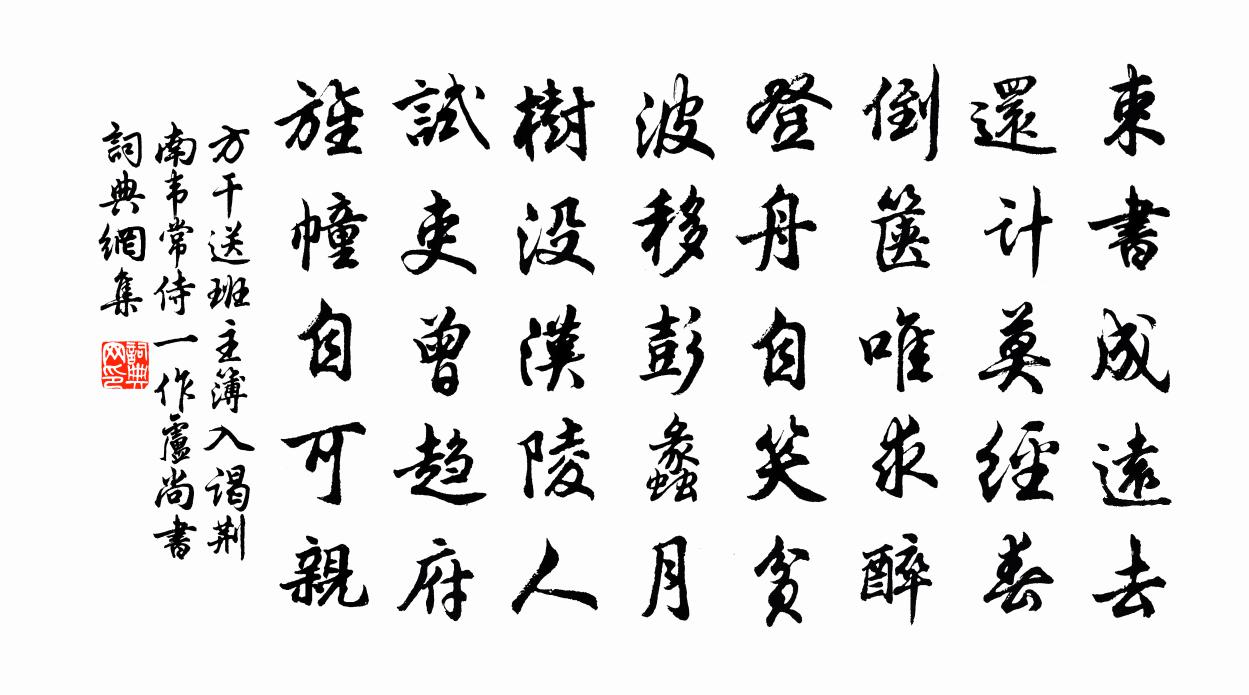 東書成遠去
還計莫經春
倒篋唯求醉
登舟自笑貧
波移彭蠡月
樹没漢陵人
試吏曾趨府
旌幢自可親
方干送班主簿入谒荆
南韦常侍一作盧尚書
詞典網集
詞典网印